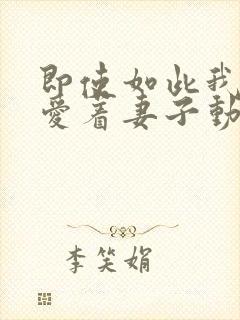 即使如此我
爱着妻子動
李笑娟